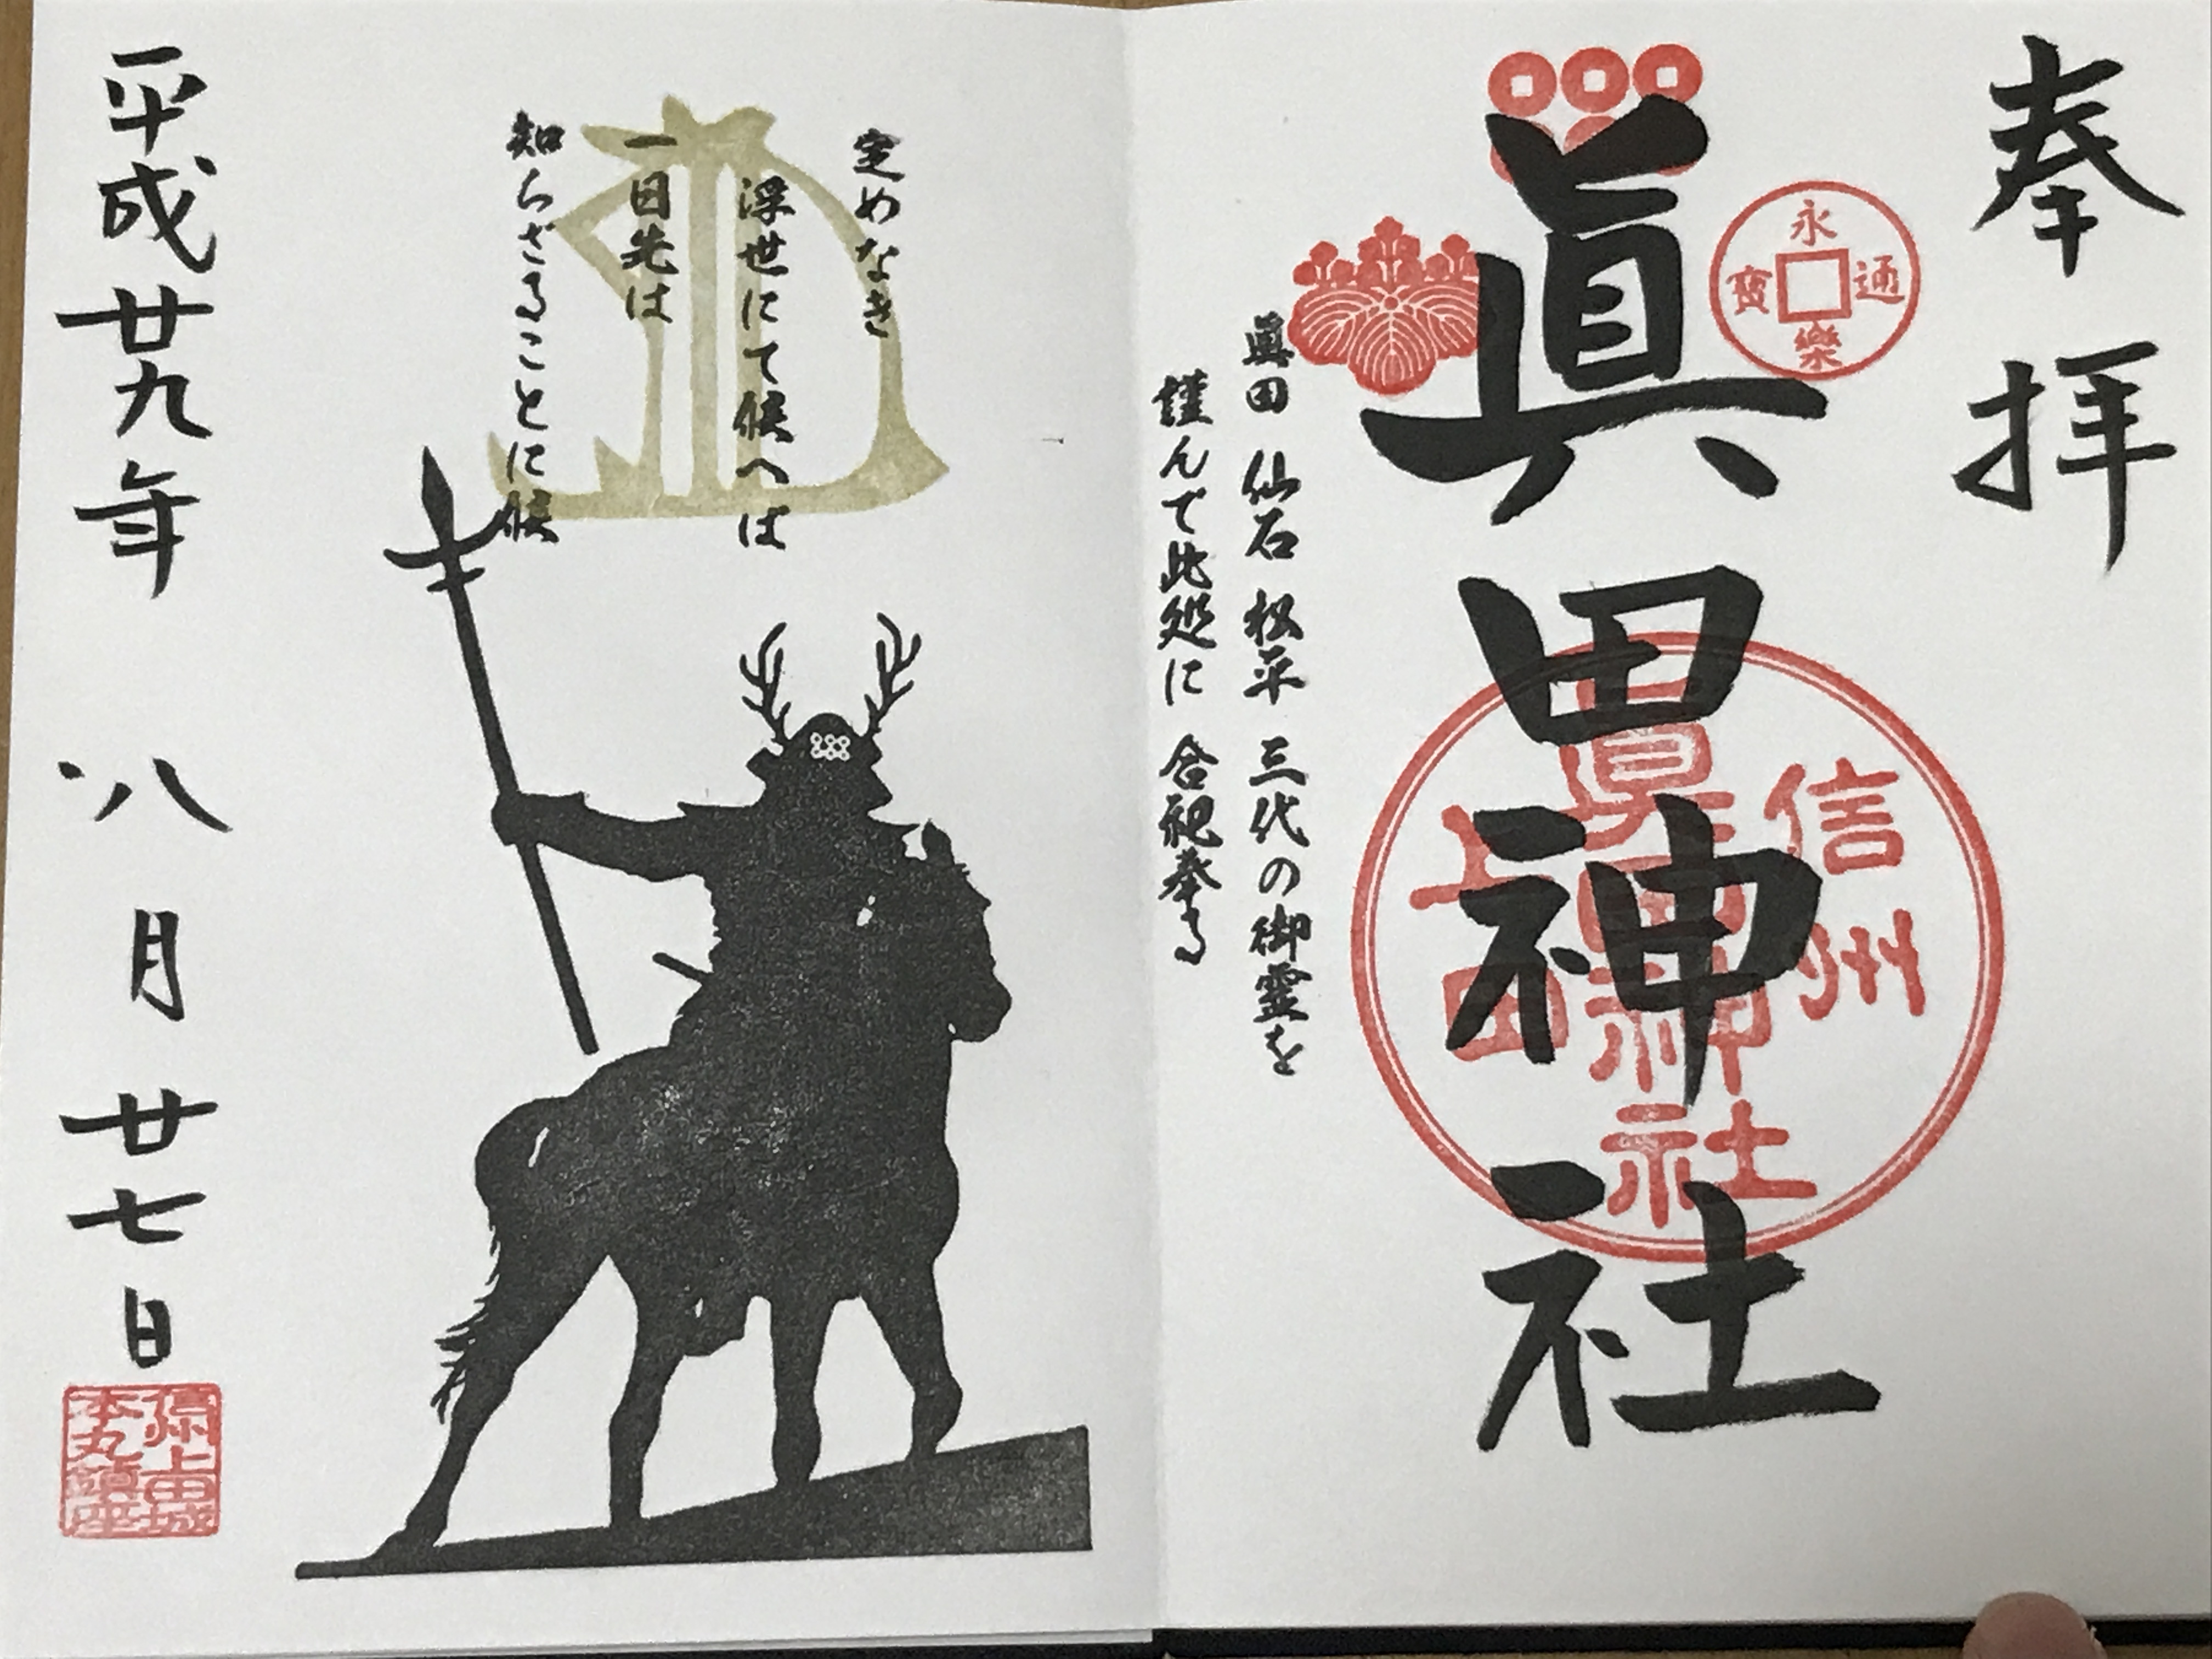 奉拝
眞田神社
永樂通寳
信州
上田
眞田神社
眞田 仙石 松平 三代の御霊を
謹んで此処に 合祀奉る
定めなき
浮世にて候へば
一日先は
知らざることに候
平成廿九年 八月廿七日
上田城
本丸鎮座